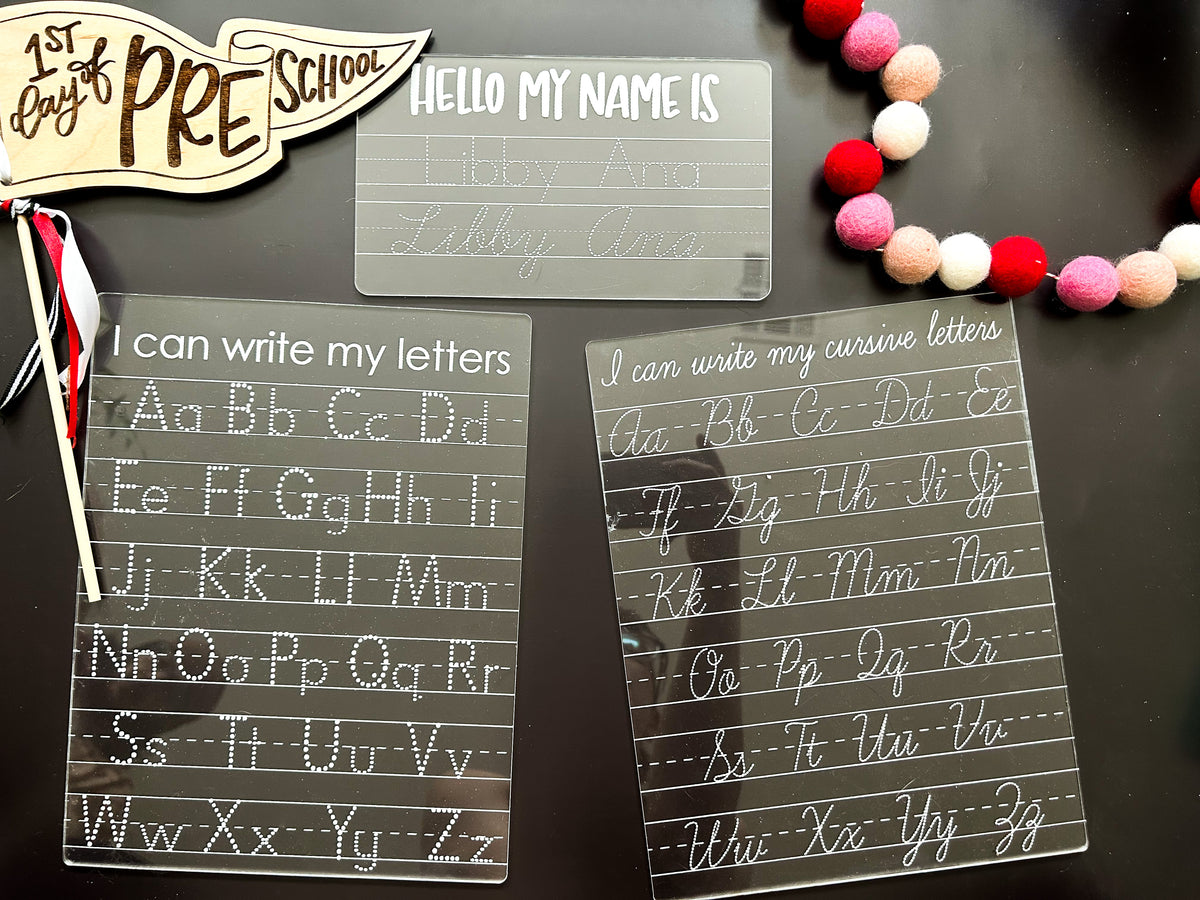 1ST
Day of
PRESCHOOL
HELLO MY NAME IS
Libby Ana
Libby Ana
I can write my letters
Aa Bb Cc Dd
Ee Ff Gg Hh Ii
Jj Kk Ll Mm
Nn Oo Pp Qq Rr
Ss Tt Uu Vv
Ww Xx Yy Zz
I can write my cursive letters
Aa Bb Cc Dd Ee
Ff Gg Hh Ii Jj
Kk Ll Mm Nn
Oo Pp Qq Rr
Ss Tt Uu Vv
Ww Xx Yy Zz